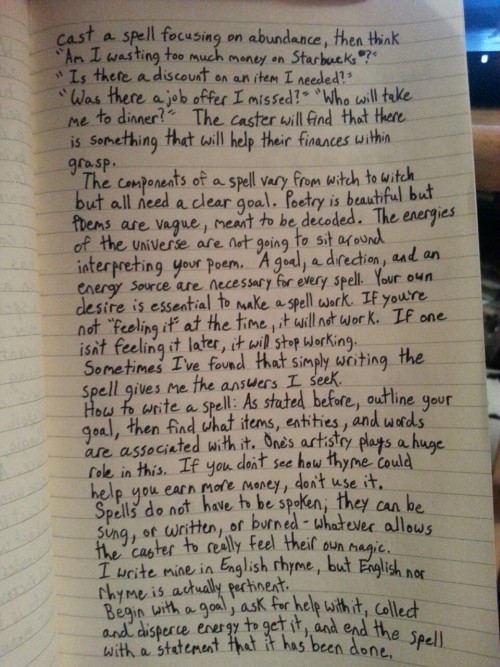 cast a spell focusing on abundance, then think
"Am I wasting too much money on Starbucks®?"
"Is there a discount on an item I needed?"
"Was there a job offer I missed?" "Who will take
me to dinner?" The caster will find that there
is something that will help their finances within
grasp.
The components of a spell vary from witch to witch
but all need a clear goal. Poetry is beautiful but
Poems are vague, meant to be decoded. The energies
of the universe are not going to sit around
interpreting your poem. A goal, a direction, and an
energy source are necessary for every spell. Your own
desire is essential to make a spell work. If you're
not "feeling it" at the time, it will not work. If one
isn't feeling it later, it will stop working.
Sometimes I've found that simply writing the
spell gives me the answers I seek.
How to write a spell: As stated before, outline your
goal, then find what items, entities, and words
are associated with it. One's artistry plays a huge
role in this. If you don't see how thyme could
help you earn more money, don't use it.
Spells do not have to be spoken; they can be
sung, or written, or burned - whatever allows
the caster to really feel their own magic.
I write mine in English rhyme, but English nor
rhyme is actually pertinent.
Begin with a goal, ask for help with it, collect
and disperce energy to get it, and end the spell
with a statement that it has been done.